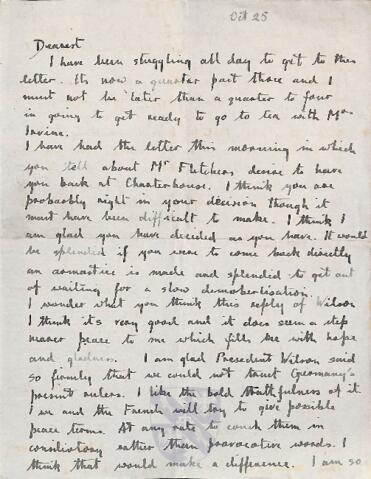 Oct 25
Dearest
I have been struggling all day to get to this
letter. Its now a quarter past three and I
must not be later than a quarter to four
in going to get ready to go to tea with Mrs
Irvine.
I have had the letter this morning in which
you tell about Mr Fletchers desire to have
you back at Charterhouse. I think you are
probably right in your decision though it
must have been difficult to make. I think I
am glad you have decided as you have. It would
be splendid if you were to come back directly
an armistice is made and splendid to get out
of waiting for a slow demobilisation.
I wonder what you think this reply of Wilson
I think its very good and it does seem a step
nearer peace to me which fills me with hope
and gladness. I am glad President Wilson said
so firmly that we could not trust Germany's
present rulers. I like the bold truthfulness of it.
I we and the French will try to give possible
peace terms. At any rate to couch them in
conciliatory rather than provocative words. I
think that would make a difference. I am so